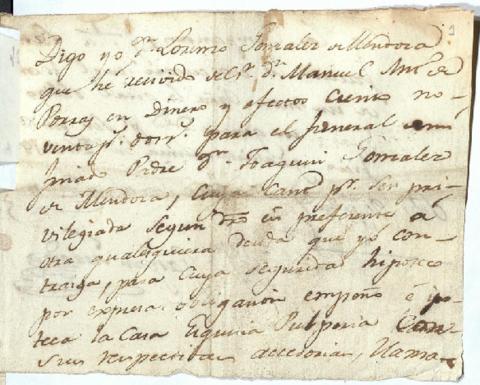 Digo yo Dn. Lorenzo Gonzalez de Mendoza
que he recivido del Sr. Dn. Manuel Anto. de
Porras en Dinero y efectos Ciento no-
venta ps. dos rs. para el funeral
Padre Dn. Joaquin Gonzalez
de Mendoza, Cuya Cantd. pr. Ser pri-
vilegiada Segun Dro. es preferente á
otra qualesquiera deuda que yo con-
traiga, para Cuya seguridad hipoteco
por expresa obligación empeño é ipo-
teca la Casa Esquina Pulperia Con
Sus respectivas accesorias, llama-